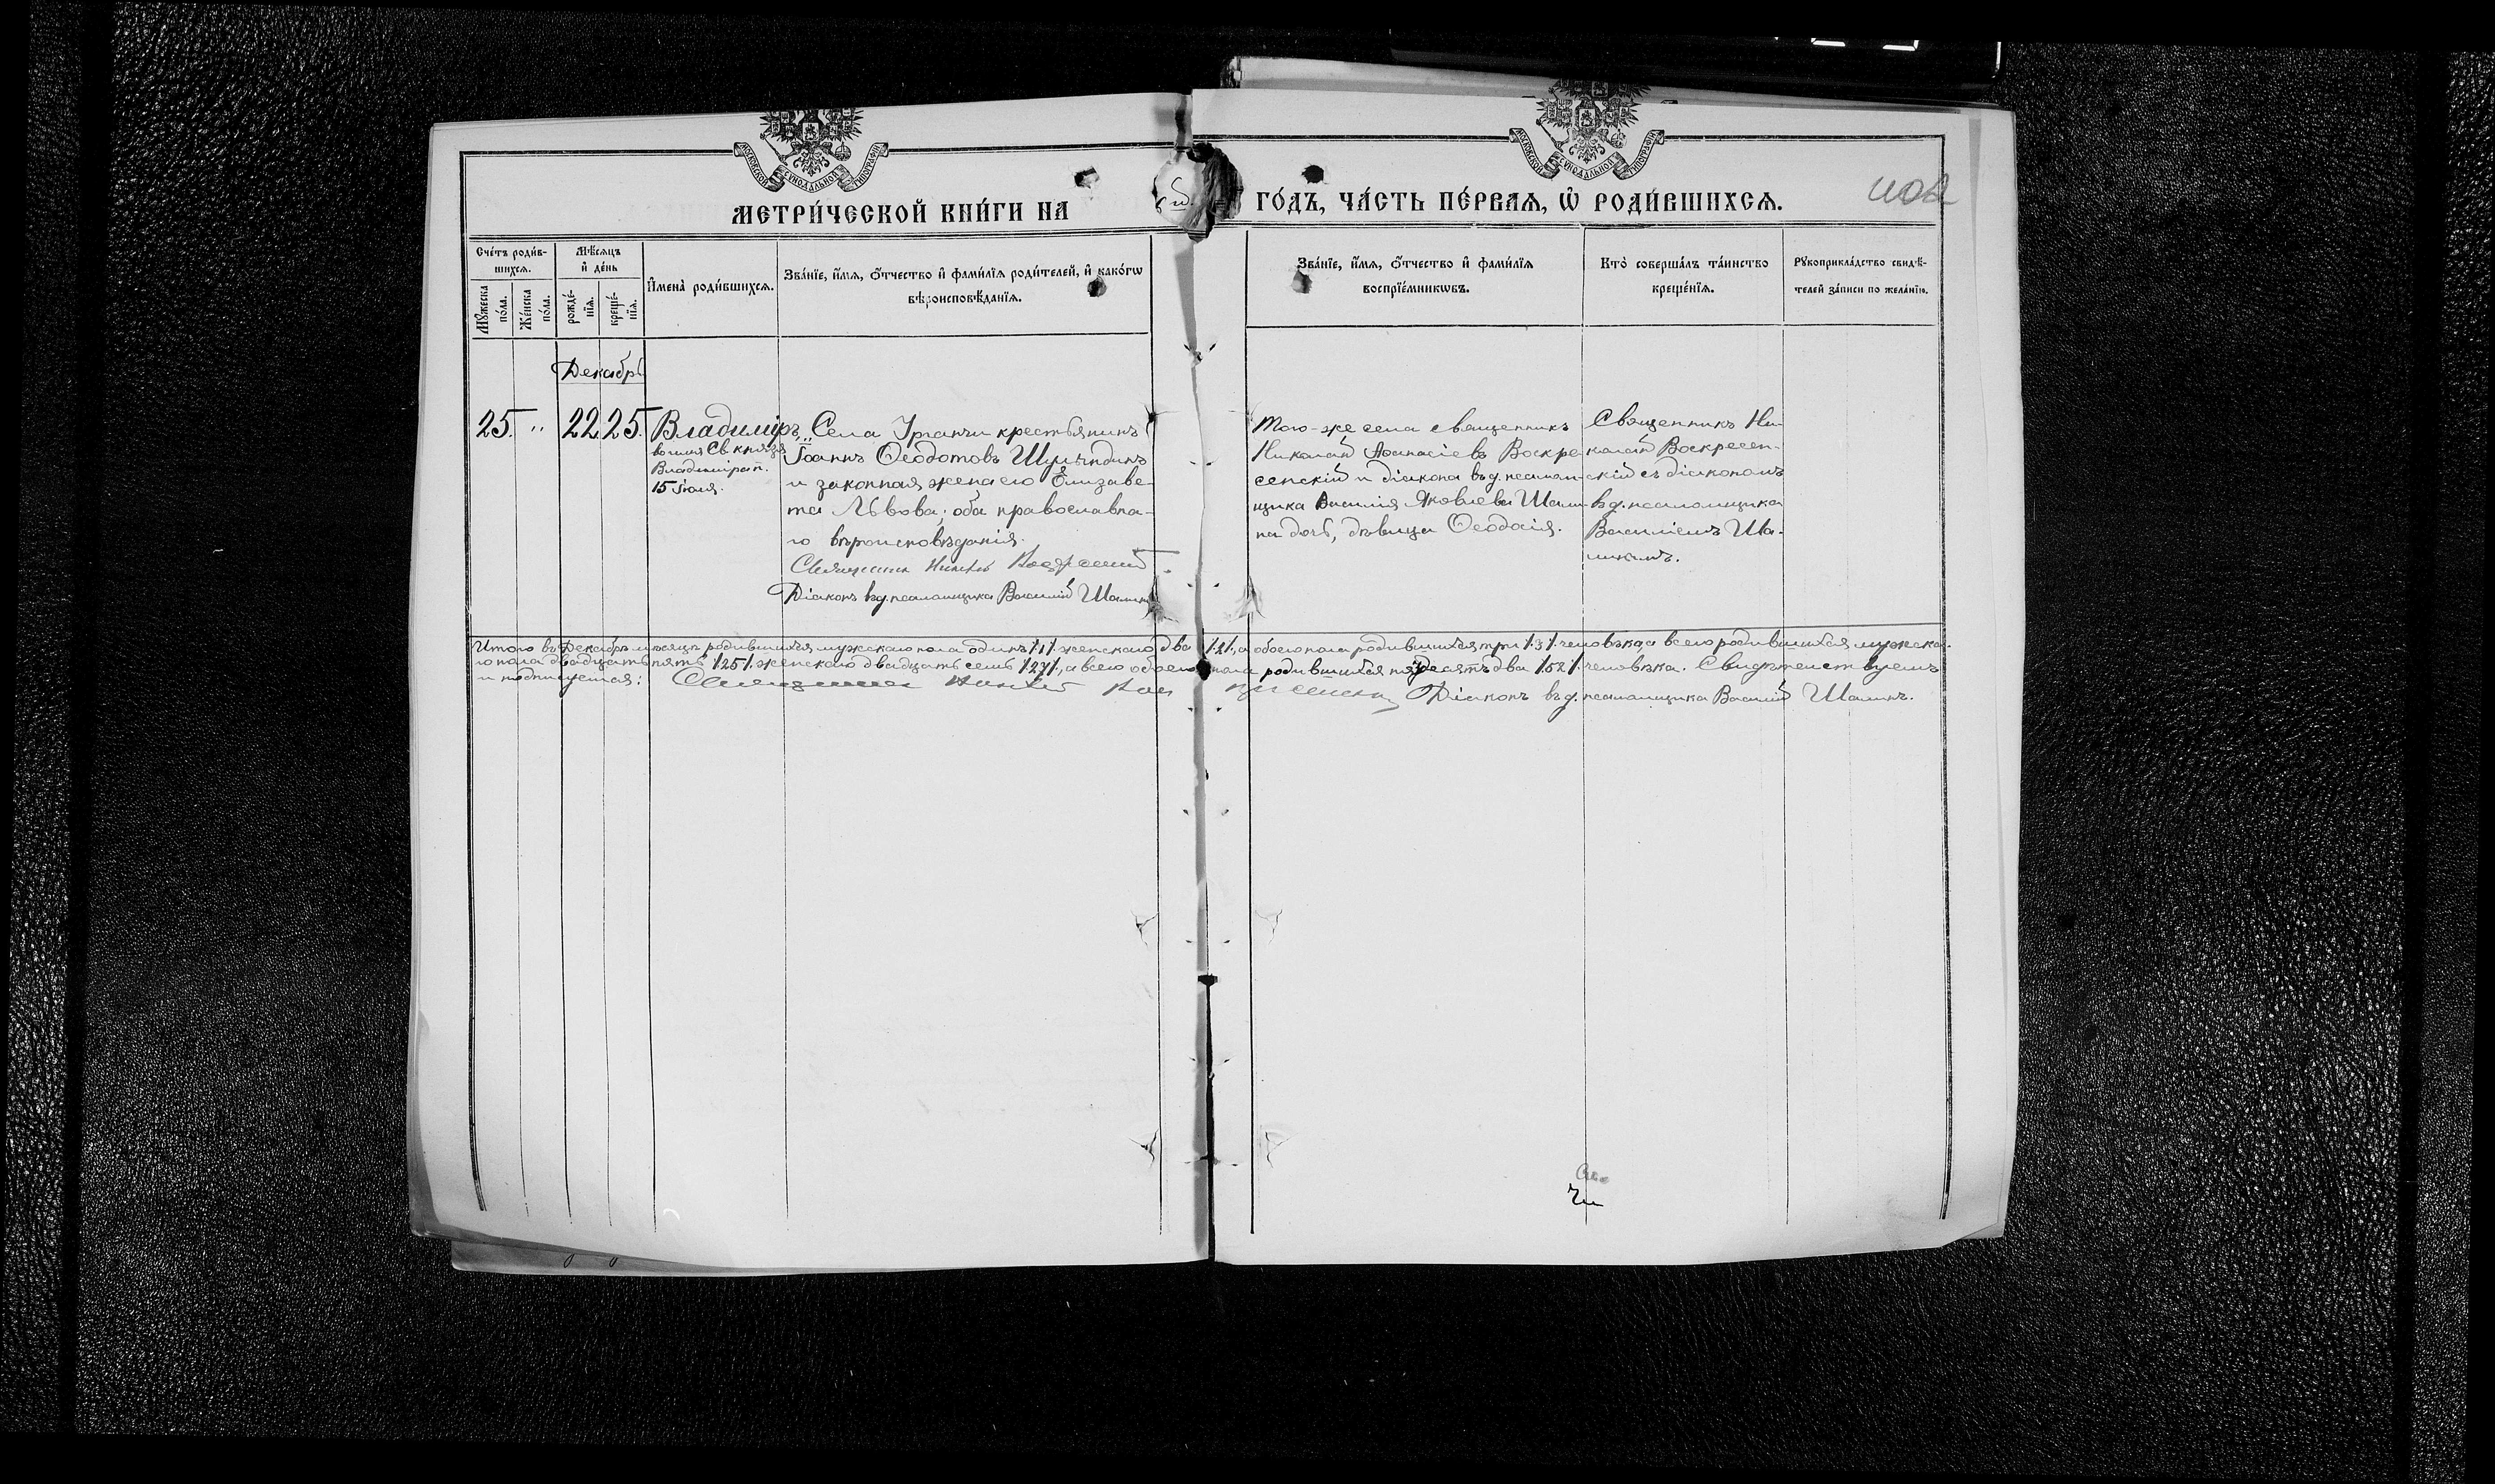 МОСКОВСКОЙ СѴНОДАЛЬНОЙ ТИПОГРАФІИ
МОСКОВСКОЙ СѴНОДАЛЬНОЙ ТИПОГРАФІИ
МЕТРИ́ЧЕСКОЙ КНИ́ГИ НА
ГО́ДЪ, ЧА́СТЬ ПЕ́РВАѦ, Ѡ҆ РОДИ́ВШИХСѦ.
Сче́тъ роди́в-
шихсѧ.
Мꙋ́жеска по́ла.
Же́нска по́ла.
Мѣ́сѧцъ
и҆ де́нь
рожде́-
нїѧ.
креще́-
нїѧ.
И҆мена̀ роди́вшихсѧ.
Зва́нїе, и҆́мѧ, ѻ҆́тчество и҆ фами́лїѧ роди́телей, и҆ како́гѡ
вѣроисповѣ́данїѧ.
Зва́нїе, и҆́мѧ, ѻ҆́тчество и҆ фами́лїѧ
воспрїе́мникѡвъ.
Кто̀ соверша́лъ та́инство
креще́нїѧ.
Рꙋкоприкла́дство свидѣ́-
телей за́писи по жела́нїю.
Декабрь
25. " 22 25.
Владиміръ
во имя Св. князя
Владиміра п.
15 Іюля.
Села крестьянинъ
Іоаннъ Ѳеодотовъ
и законная жена его Елизаве-
та Львова; оба православна-
го вѣроисповѣданія.
Священник
Діаконъ в.д. псаломщика Василій Шалинъ
Того-же села священникъ
Николай Аѳанасіевъ Воскре-
сенскій и діакона в.д. псалом-
щика Василія Яковлева Шали-
на дочь, дѣвица Ѳеодосія.
Священникъ Ни-
колай Воскресен-
скій съ діакономъ
в.д. псаломщика
Василіемъ Ша-
линымъ.
Итого въ Декабрѣ мѣсяцѣ родившихся мужскаго пола одинъ /1/ женскаго два /2/, а обоего пола родившихся три /3/ человѣка; а всего родившихся мужска-
го пола двадцать пять /25/ женскаго двадцать семь /27/, а всего обоего пола родившихся пятьдесятъ два /52/ человѣка. Свидѣтельствуемъ
и подписуемся: Священник Діаконъ в.д. псаломщика Василій Шалинъ.